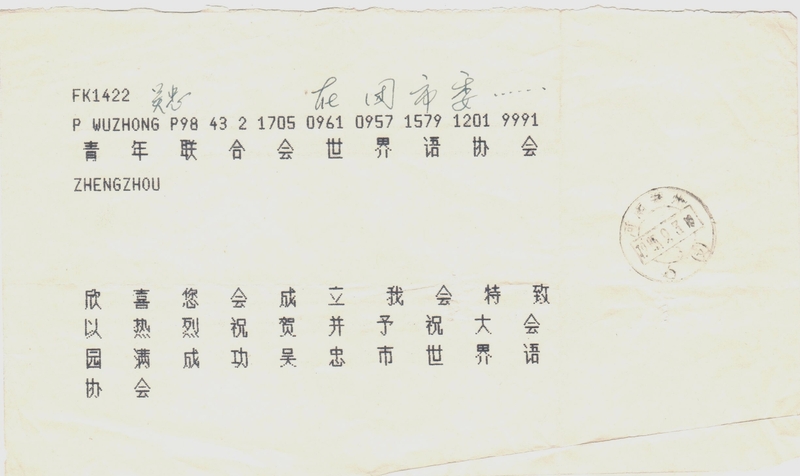 FK1422 吴忠 在团市委……
P WUZHONG P98 43 2 1705 0961 0957 1579 1201 9991
青年联合会世界语协会
ZHENGZHOU
欣喜您会成立我会特致
以热烈祝贺并予祝大会
园满成功吴忠市世界语
协会